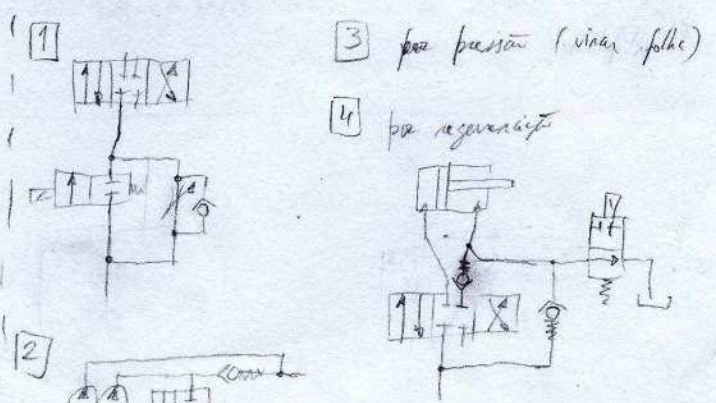 1
3 por pressão (virar folha)
4 por regeneração
2